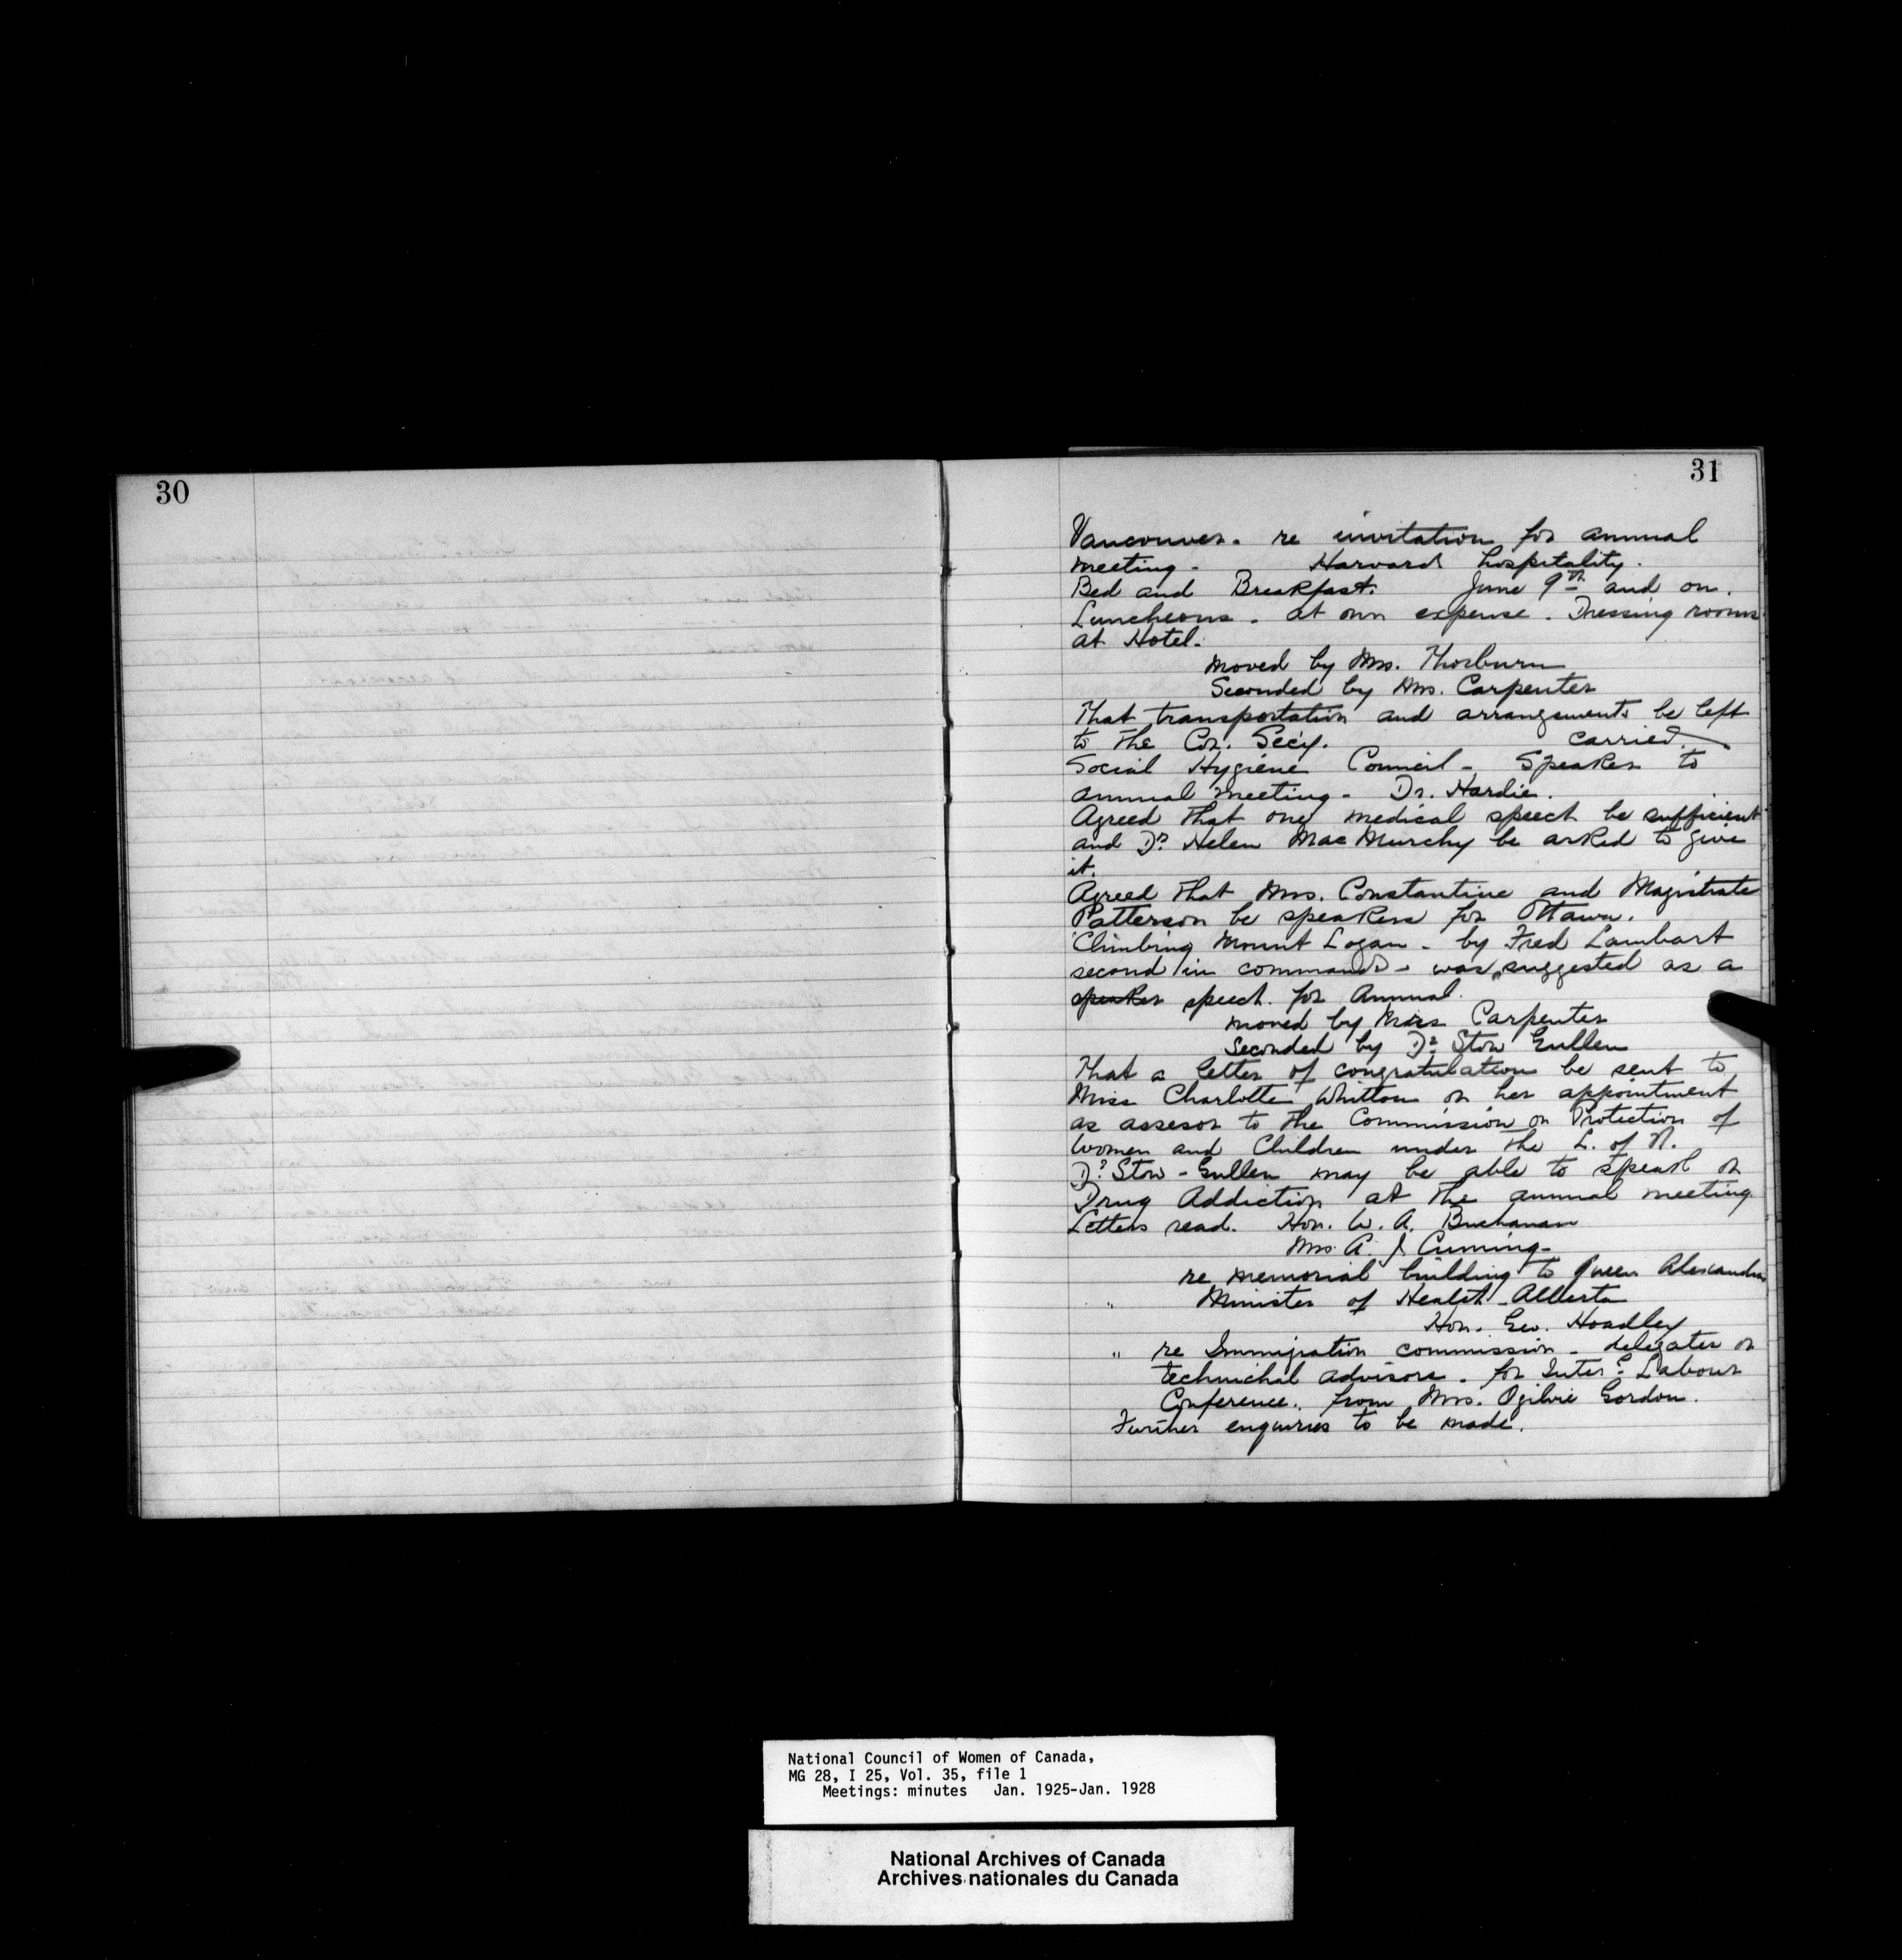 30
31
Vancouver. re invitation for annual
meeting - Harvard hospitality.
Bed and Breakfast. June 9th and on.
Luncheons. at own expense. Dressing rooms
at Hotel.
moved by Mrs. Thorburn
Seconded by Mrs. Carpenter
That transportation and arrangements be left
to the Cor. Sec'y. carried.
Social Hygiene Council - Speaker to
annual meeting - Dr. Hardie.
Agreed that one medical speech be sufficient
and Dr. Helen MacMurchy be asked to give
it.
Agreed that Mrs. Constantine and Magistrate
Patterson be speakers for Ottawa.
Climbing Mount Logan - by Fred Lambart
second in command - was suggested as a
speaker speech for Annual.
moved by Miss Carpenter
Seconded by Dr. Stow Gullen
That a letter of congratulation be sent to
Miss Charlotte Whitton on her appointment
as assesor to the Commission on Protection of
Women and Children under the L. of N.
Dr. Stow-Gullen may be able to speak on
Drug Addiction at the annual meeting
Letters read. Hon. W. A. Buchanan
Mrs. A. J. Cuming -
re memorial building to Queen Alexandra
" Minister of Health - Alberta
Hon. Geo. Hoadley
" re Immigration commission - delegates or
technichal advisors. for Inter: Labour
Conference. from Mrs. Ogilvie Gordon.
Further enquiries to be made.
National Council of Women of Canada,
MG 28, I 25, Vol. 35, file 1
Meetings: minutes Jan. 1925-Jan. 1928
National Archives of Canada
Archives nationales du Canada